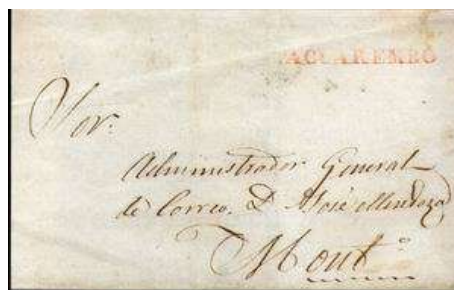 TACUAREMBÓ
Sor.
Administrador General
de Correo. D. José Mendoza
Montº